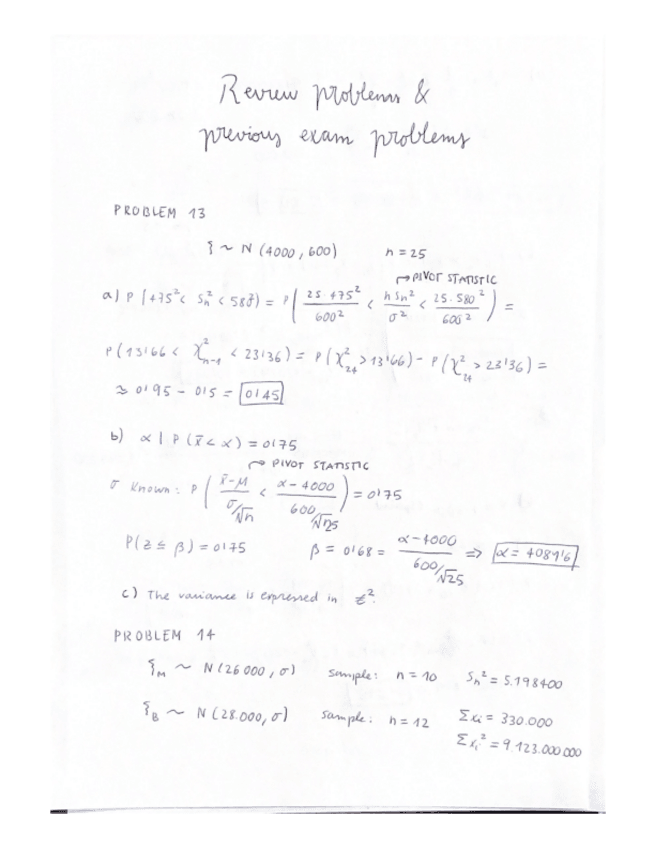 Review problems &
previous exam problems
PROBLEM 13
ξ ~ N (4000, 600) n = 25
→ PIVOT STATISTIC
a) P (475² < Sn² < 580²) = P ( 25·475² / 600² < n Sn² / σ² < 25·580² / 600² ) =
P (15'66 < χ²n-1 < 23'36) = P (χ²24 > 15'66) - P (χ²24 > 23'36) =
≈ 0'95 - 0'5 = 0'45
b) α | P (x̄ < α) = 0'75
→ PIVOT STATISTIC
σ known: P ( x̄-μ / σ/√n < α - 4000 / 600/√25 ) = 0'75
P(z ≤ β) = 0'75 β = 0'68 = α-4000 / 600/√25 ⇒ α = 4081'6
c) The variance is expressed in €².
PROBLEM 14
ξM ~ N (26000, σ) sample: n = 10 Sn² = 5.198400
ξB ~ N (28.000, σ) sample: n = 12 Σxi = 330.000
Σxi² = 9.123.000.000